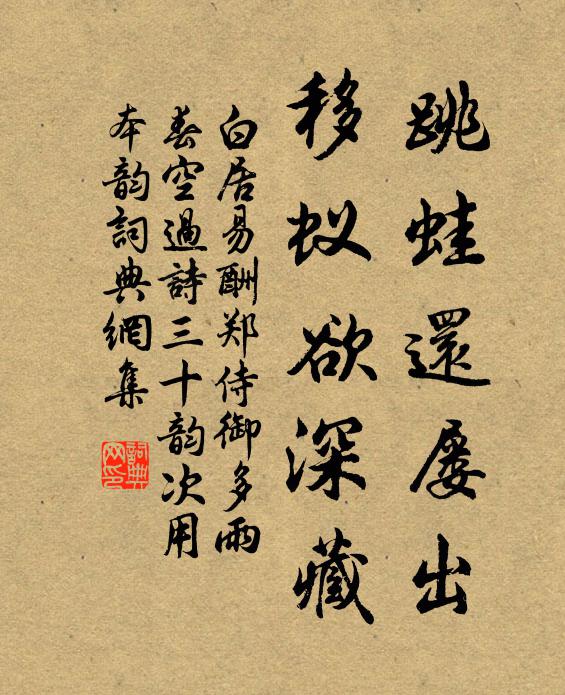 跳蛙還屡出
移蚁欲深藏
白居易酬郑侍御多雨
春空過詩三十韵次用
本韵詞典網集
詞典
网印